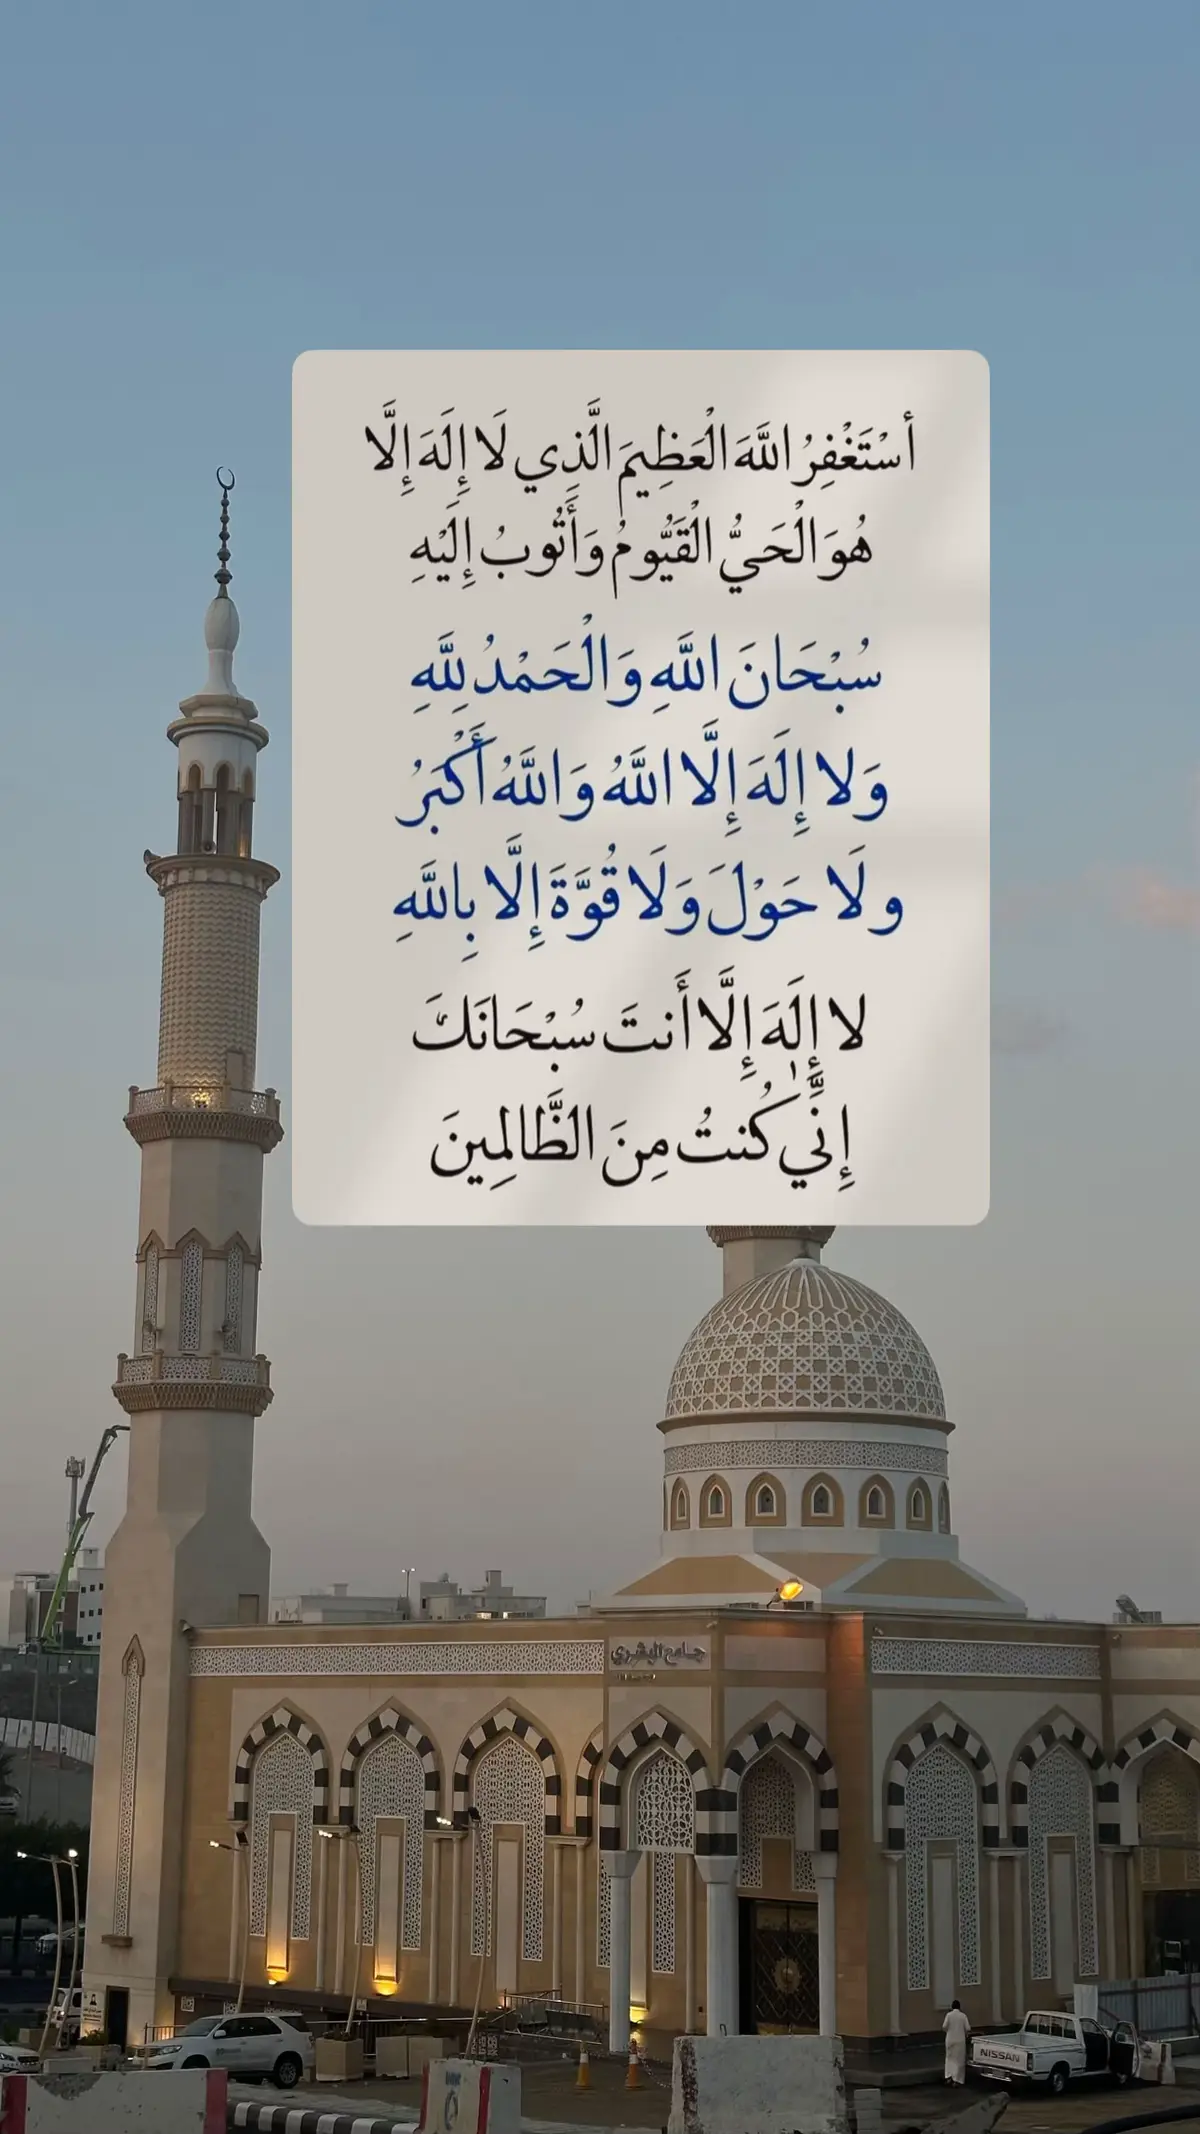 أَسْتَغْفِرُ اللَّهَ الْعَظِيمَ الَّذِي لَا إِلَهَ إِلَّا
هُوَ الْحَيُّ الْقَيُّومُ وَأَتُوبُ إِلَيْهِ
سُبْحَانَ اللَّهِ وَالْحَمْدُ لِلَّهِ
وَلا إِلَهَ إِلَّا اللَّهُ وَاللَّهُ أَكْبَرُ
ولَا حَوْلَ وَلَا قُوَّةَ إِلَّا بِاللَّهِ
لا إِلَٰهَ إِلَّا أَنتَ سُبْحَانَكَ
إِنِّي كُنتُ مِنَ الظَّالِمِينَ
جامع البشري
NISSAN